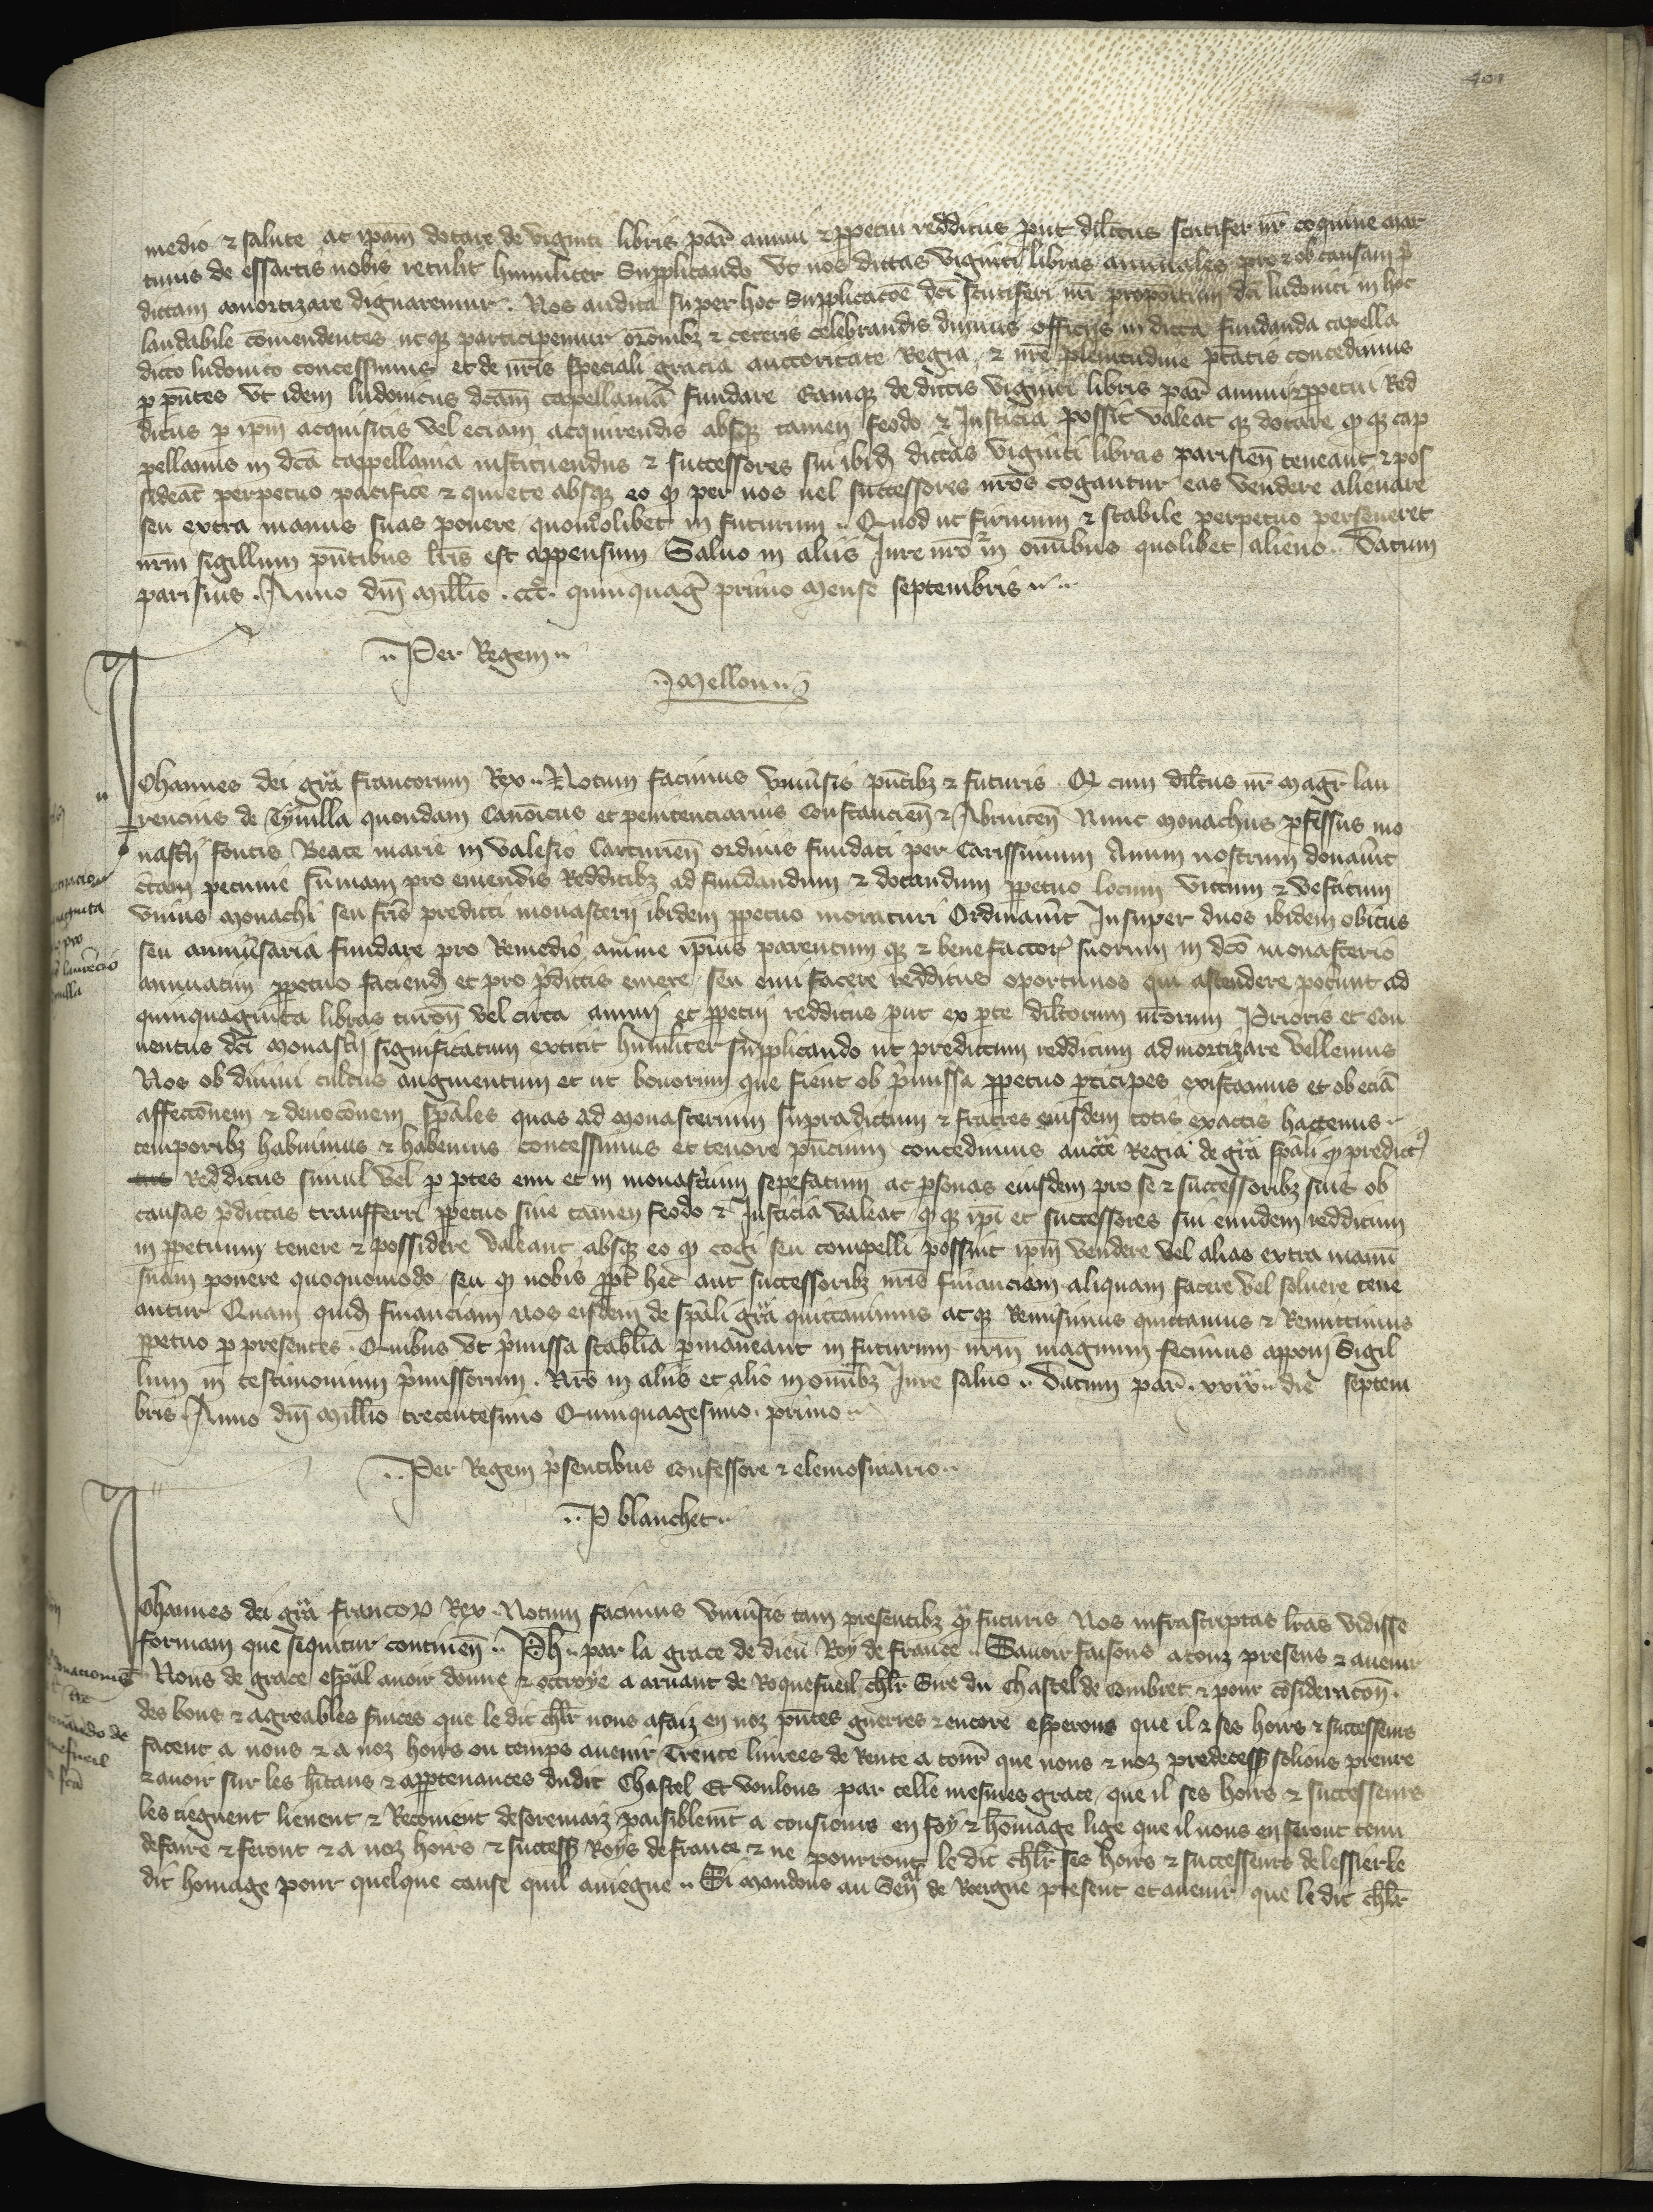 401
medio ⁊ salute ac ip̄am dotare de viginti libris par̄ annui ⁊ ꝑpetui redditus prout dil̄ctus scutifer nr̄ coquine mar
tinus de essartis nobis retulit humiliter supplicando vt nos dictas viginti libras annuales pro ⁊ ob causam p̄
dictam amortizare dignaremur. Nos audita super hoc supplicacōe dc̄i scutiferi nr̄i propositum dc̄i ludouici in hoc
laudabile cōmendentes ut qꝫ participemur orōnibꝫ ⁊ ceteris celebrandis diuinis officijs in dicta fundanda capella
dicto ludouico concessimus et de nr̄is speciali gracia auctoritate Regia ⁊ nr̄e plenitudine ptātis concedimus
ꝑ pn̄tes vt idem ludouicus dc̄am cappellaniā fundare Eamqꝫ de dictis viginti libris par̄ annui ⁊ ꝑpetui Red
ditus ꝑ ip̄m acquisitis vel eciam acquirendis absqꝫ tamen feodo ⁊ Justicia possit valeat qꝫ dotare qͦ qꝫ cap
pellanus in dc̄a cappellania instituendus ⁊ successores sui ibid̄ dictas viginti libras parisien̄ teneant ⁊ pos
sideāt perpetuo pacifice ⁊ quiete absqꝫ eo qͦ per nos uel successores nr̄os cogantur eas vendere alienare
seu extra manus suas ponere quomᵒdolibet in futurum .. Quod ut firmum ⁊ stabile perpetuo perseueret
nr̄m sigillum pn̄tibus lr̄is est appensum Saluo in aliis Jure nr̄o ⁊ in om̄ibus quolibet alieno .. Datum
parisius . Anno dn̄i mill̄io . ccc̊ . quinquag̊ primo mense septembris ..
.. Per Regem ..
.. Mellou ..
Johannes dei gr̄a francorum Rex .. Notum facimus vniu̾sis pn̄tibꝫ ⁊ futuris . Qͦ cum dil̄ctus nr̄ magr̄ lau
rencius de Tyuilla quondam Canōicus et penitenciarius Constancien̄ ⁊ Abrincen̄ Nunc monachus ꝓfessus mo
nast̾ij fontis Beate marie in valesio Carturien̄ ordinis fundati per Carissimum Auum nostrum donau̾it
c̾tam pecunie sūmam pro emendis Redditibꝫ ad fundandum ⁊ dotandum ꝑpetuo locum victum ⁊ vestitum
vnius monachi seu fr̄is predicti monasterij ibidem ꝑpetuo moraturi Ordinau̾it Insuper duos ibidem obitus
seu anniu̾saria fundare pro Remedio anime ip̄ius parentum qꝫ ⁊ benefactor̾ suorum in dc̄o monasterio
annuatim ꝑpetuo faciend̄ et pro p̄dictis emere seu emi facere redditus oportunos qui ascendere pot̾unt ad
quinquaginta libras turon̄ vel circa annuj et ꝑpetuj redditus prout ex ꝑte dil̄ctorum nr̄orum Prioris et Con
uentus dc̄i monast̾ij significatum extitit humiliter supplicando ut predictum redditum admortizare vellemus
Nos ob diuini cultus augmentum et ut bonorum que fient ob p̄missa ꝑpetuo ꝑticipes existamus et ob eciā
affectōnem ⁊ deuocōnem spāles quas ad monasterium supradictum ⁊ fratres eiusdem totis exactis hactenus ..
temporibꝫ habuimus ⁊ habemus concessimus et tenore pn̄cium concedimus auctē Regia de gr̄a spāli qͦ predict̾
redditus simul vel ꝑ ꝑtes emi et in monast̾ium sepefatum ac ꝑsonas eiusdem pro se ⁊ successoribꝫ suis ob
causas p̄dictas transferri ꝑpetuo sine tamen feodo ⁊ Justicia valeat qͦ qꝫ ip̄i et successores sui eundem redditum
in ꝑpetuum tenere ⁊ possidere valeant absqꝫ eo qͦ cogi seu compelli possint ip̄m vendere vel alias extra manū
suam ponere quoquomodo seu qͦ nobis ꝓpt̾ hec aut successoribꝫ nr̄is financiam aliquam facere vel soluere tene
antur Quam quid̄ financiam nos eisdem de spāli gr̄a quittauimus ac qꝫ Remisimus quittamus ⁊ Remittimus
ꝑpetuo ꝑ presentes . Quibus vt p̄missa stabl̄ia ꝑmaneant in futurum nr̄m magnum fecimus apponj Sigil
lum in testimonium p̄missorum . Nr̄o in aliis et al̄io in om̄ibꝫ Jure saluo .. Datum par̄ . xxix .. die septem
bris . Anno dn̄i mill̄io trecentesimo Quinquagesimo . primo ..
.. Per Regem p̄sentibus Confessore ⁊ elemosinario ..
.. P blanchet ..
Johannes dei gr̄a francoꝝ Rex .. Notum facimus vniu̾sis tam presentibꝫ qᵃ̄ futuris Nos infrascriptas lr̄as vidisse
formam que sequitur continen̄ .. Ph̄ .. par la grace de dieu Roy de france .. Sauoir faisons a touz presens ⁊ auenir
Nous de grace esp̄al auoir donne ⁊ octroye a arnaut de Roquefueil ch̄lr Sire du Chastel de Combret ⁊ pour cōsideracōn ..
des bons ⁊ agreables su̾ices que le dit ch̄lr nous a faiz en noz pn̄tes guerres ⁊ encore esperons que il ⁊ ses hoirs ⁊ successeurs
facent a nous ⁊ a noz hoirs ou temps auenir Trente liurees de Rente a tour̄ que nous ⁊ noz predecess̾ solions prenre
⁊ auoir sur les h̄itans ⁊ apꝑtenances dudit Chastel Et voulons par celle mesmes grace que il ses hoirs ⁊ successeurs
les tiegnent lieuent ⁊ Recoiuent desoremaiz paisiblem̄t a tousiours en foy ⁊ hōmage lige que il nous en seront tenu
de faire ⁊ feront ⁊ a noz hoirs ⁊ success̾ Roys de france ⁊ ne pourront le dit ch̄lr ses hoirs ⁊ successeurs delessier le
dit homage pour quelque cause quil auiegne .. Si mandons au Sen̄ᵃˡ de Roergue present et auenir que le dit ch̄lr